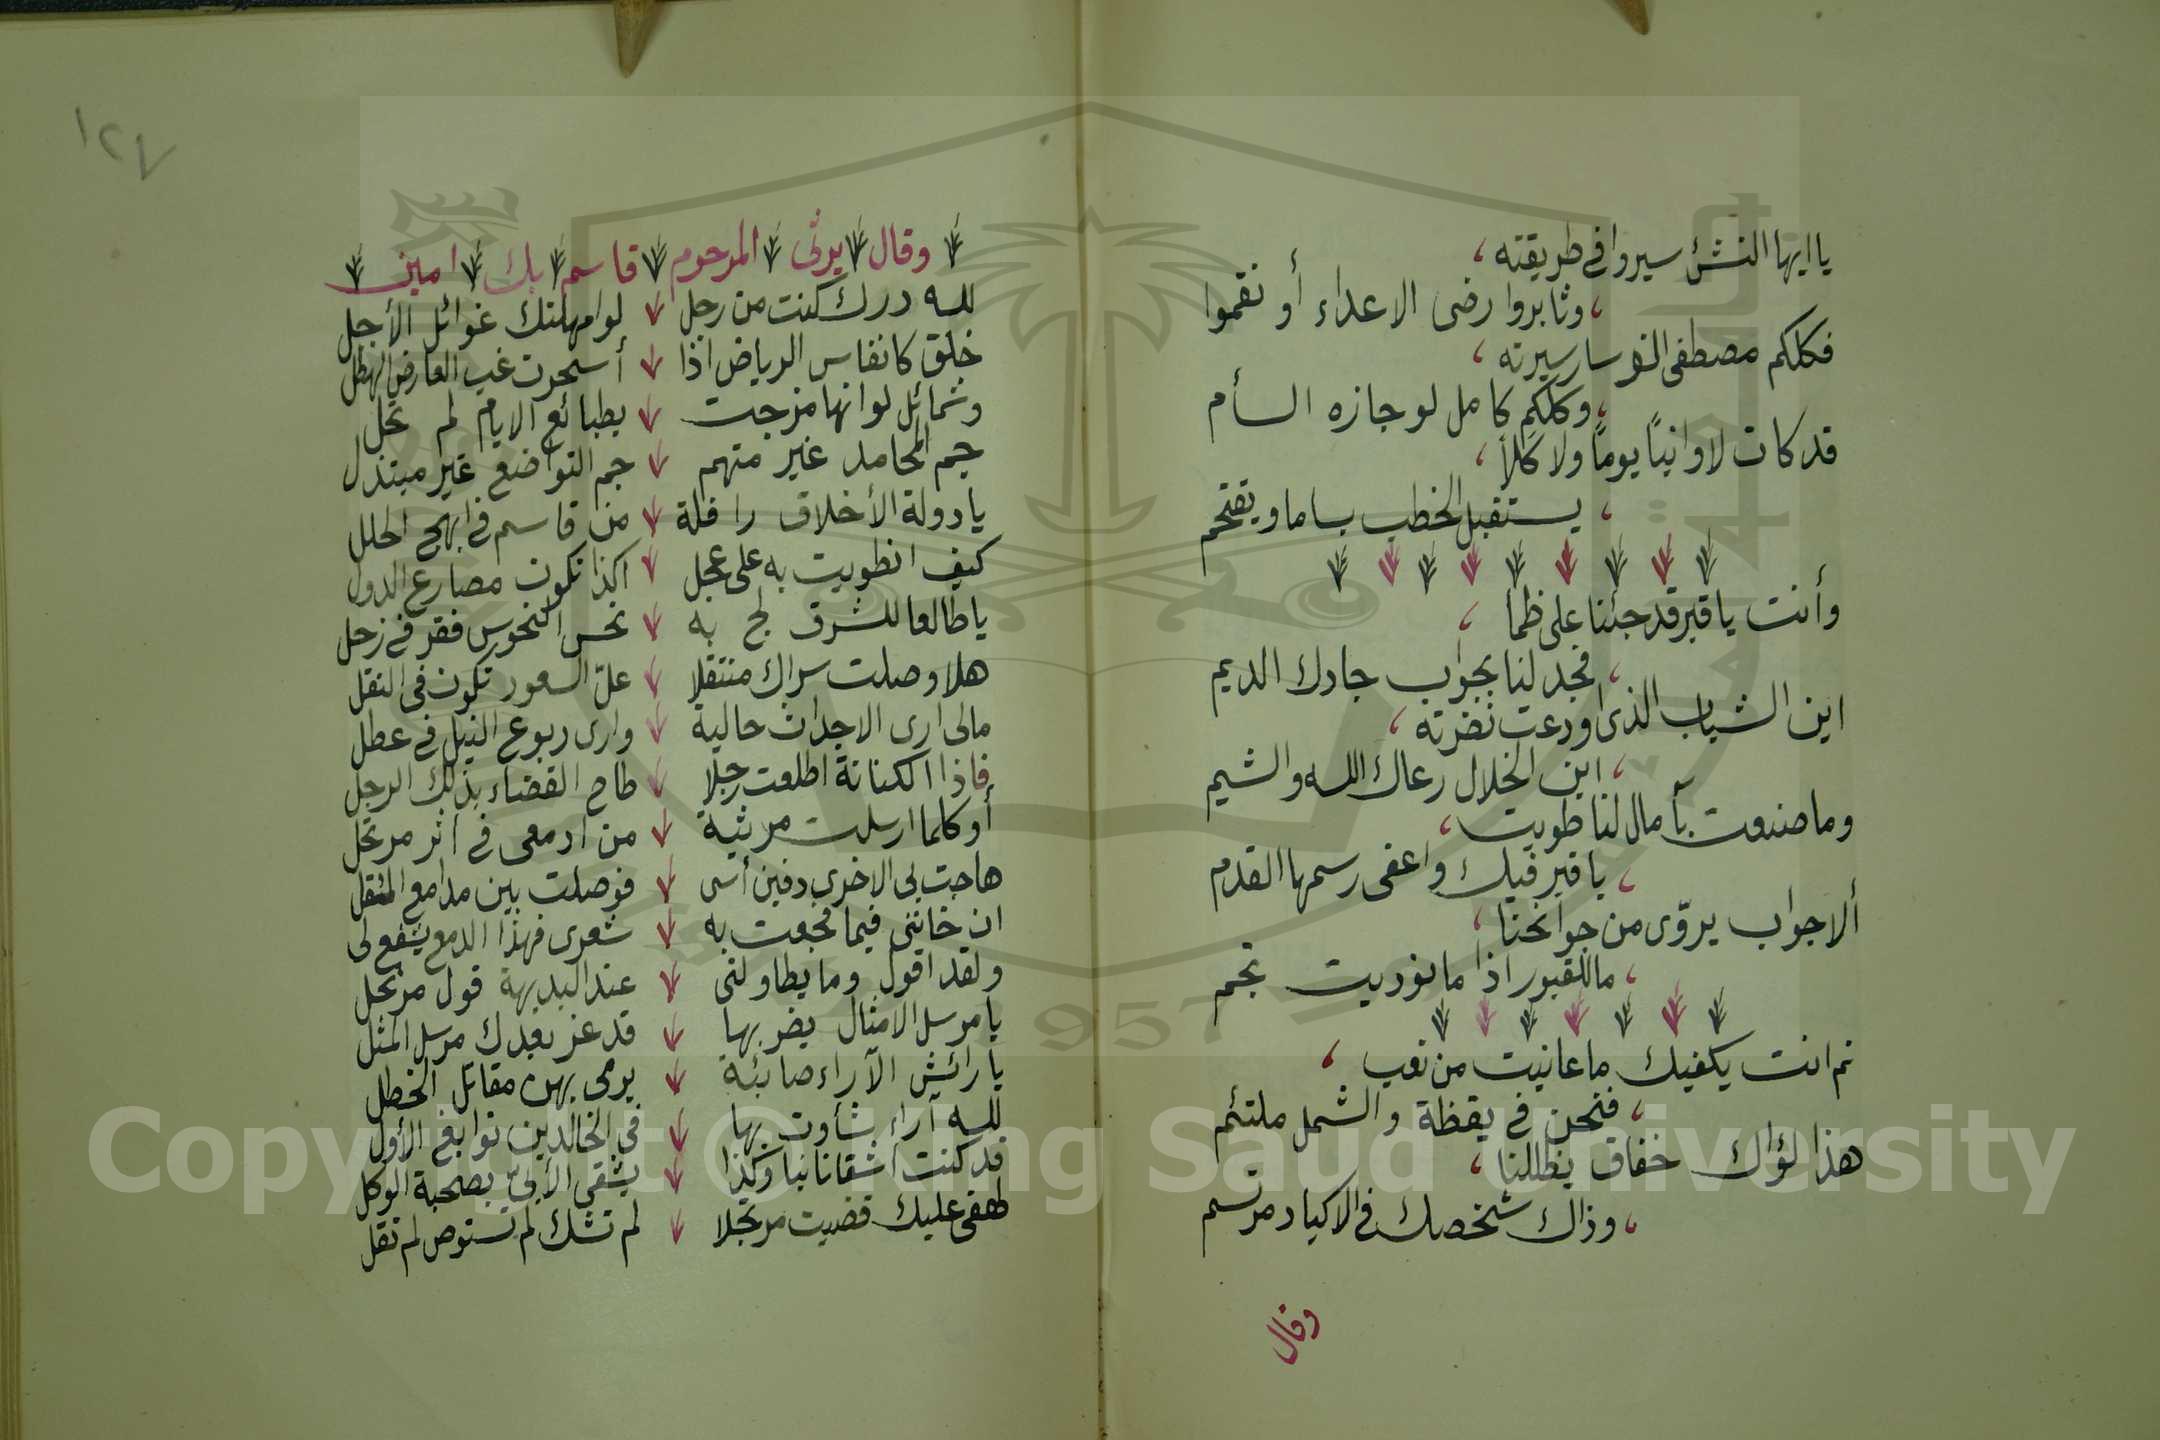 يا ايها النشئ سيروا في طريقته ،
، وثابروا رضى الاعداء أو نقموا
فكلكم مصطفى لو سار سيرته ،
، وكلكم كامل لو جازه السأم
قد كان لا وانياً يوماً ولا كَلاً ،
، يستقبل الخطب بساما ويقتحم
وأنت يا قبر قد جئنا على ظما ،
، فجد لنا بجواب جادك الديم
اين الشباب الذى اودعت نضرته ،
، اين الخلال رعاك الله والشيم
وما صنعت بآمال لنا طويت ،
، يا قبر فيك واعفى رسمها القدم
ألا جواب يروّى من جوانحنا ،
، ما للقبور اذا ما نوديت تجم
نم انت يكفيك ما عانيت من تعب ،
، فنحن في يقظة والشمل ملتئم
هذا لؤاك خفاق يظللنا ،
، وذاك شخصك في الاكباد مرتسم
وقال
١٢٧
وقال يرثى المرحوم قاسم بك امين
لله درك كنت من رجل لو امهلتك غوائل الأجل
خلق كانفاس الرياض اذا أسحرت غب العارض الهطل
وشمائل لو انها مزجت بطبائع الايام لم تحل
جم المحامد غير متهم جم التواضع غير مبتذل
يا دولة الأخلاق رافلة من قاسم في ابهج الحلل
كيف انطويت به على عجل اكذا تكون مصارع الدول
يا طالعا للشرق لج به نحس النحوس فقر في زحل
هلا وصلت سراك منتقلا علّ السعود تكون في النقل
مالى ارى الاجداث حالية وارى ربوع النيل في عطل
فاذا الكنانة اطلعت رجلا طاح القضاء بذلك الرجل
أو كلما ارسلت مرثية من ادمعى في اثر مرتحل
هاجت بى الاخرى دفين أسى فوصلت بين مدامع المقل
ان خاننى فيما فجعت به شعرى فهذا الدمع يشفع لى
ولقد اقول وما يطاولنى عند البديهة قول مرتجل
يا مرسل الامثال يضربها قد عز بعدك مرسل المثل
يا رائش الآراء صائبة يرمى بهن مقاتل الخطل
لله آراء شأوت بها في الخالدين نوابغ الأول
قد كنت اشقانا بنا وكذا يشقى الأبىّ بصحبة الوكل
لهفى عليك قضيت مرتجلا لم تشك لم تستوص لم تقل
Copyright © King Saud University
1957